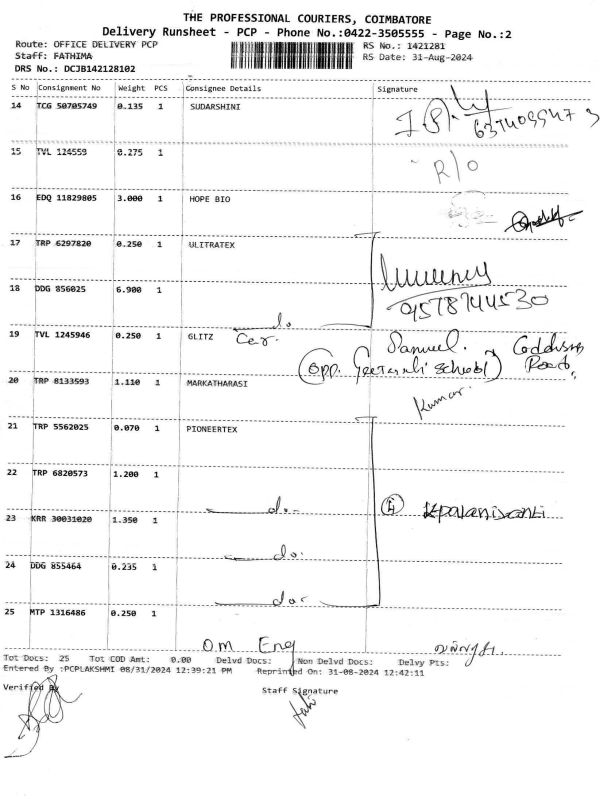 THE PROFESSIONAL COURIERS, COIMBATORE
Delivery Runsheet - PCP - Phone No.:0422-3505555 - Page No.:2
Route: OFFICE DELIVERY PCP RS No.: 1421281
Staff: FATHIMA RS Date: 31-Aug-2024
DRS No.: DCJB142128102
S No Consignment No Weight PCS Consignee Details Signature
14 TCG 50705749 0.135 1 SUDARSHINI
15 TVL 124559 0.275 1
R/O
16 EDQ 11829805 3.000 1 HOPE BIO
17 TRP 6297820 0.250 1 ULITRATEX
18 DDG 856025 6.900 1
9578744530
do
19 TVL 1245946 0.250 1 GLITZ Samuel.
(opp. school) Road.
20 TRP 8133593 1.110 1 MARKATHARASI
Kumar.
21 TRP 5562025 0.070 1 PIONEERTEX
22 TRP 6820573 1.200 1
do
23 KRR 30031020 1.350 1
do
24 DDG 855464 0.235 1
do
25 MTP 1316486 0.250 1
O.M Eng
Tot Docs: 25 Tot COD Amt: 0.00 Delvd Docs: Non Delvd Docs: Delvy Pts:
Entered By :PCPLAKSHMI 08/31/2024 12:39:21 PM Reprinted On: 31-08-2024 12:42:11
Verified By Staff Signature